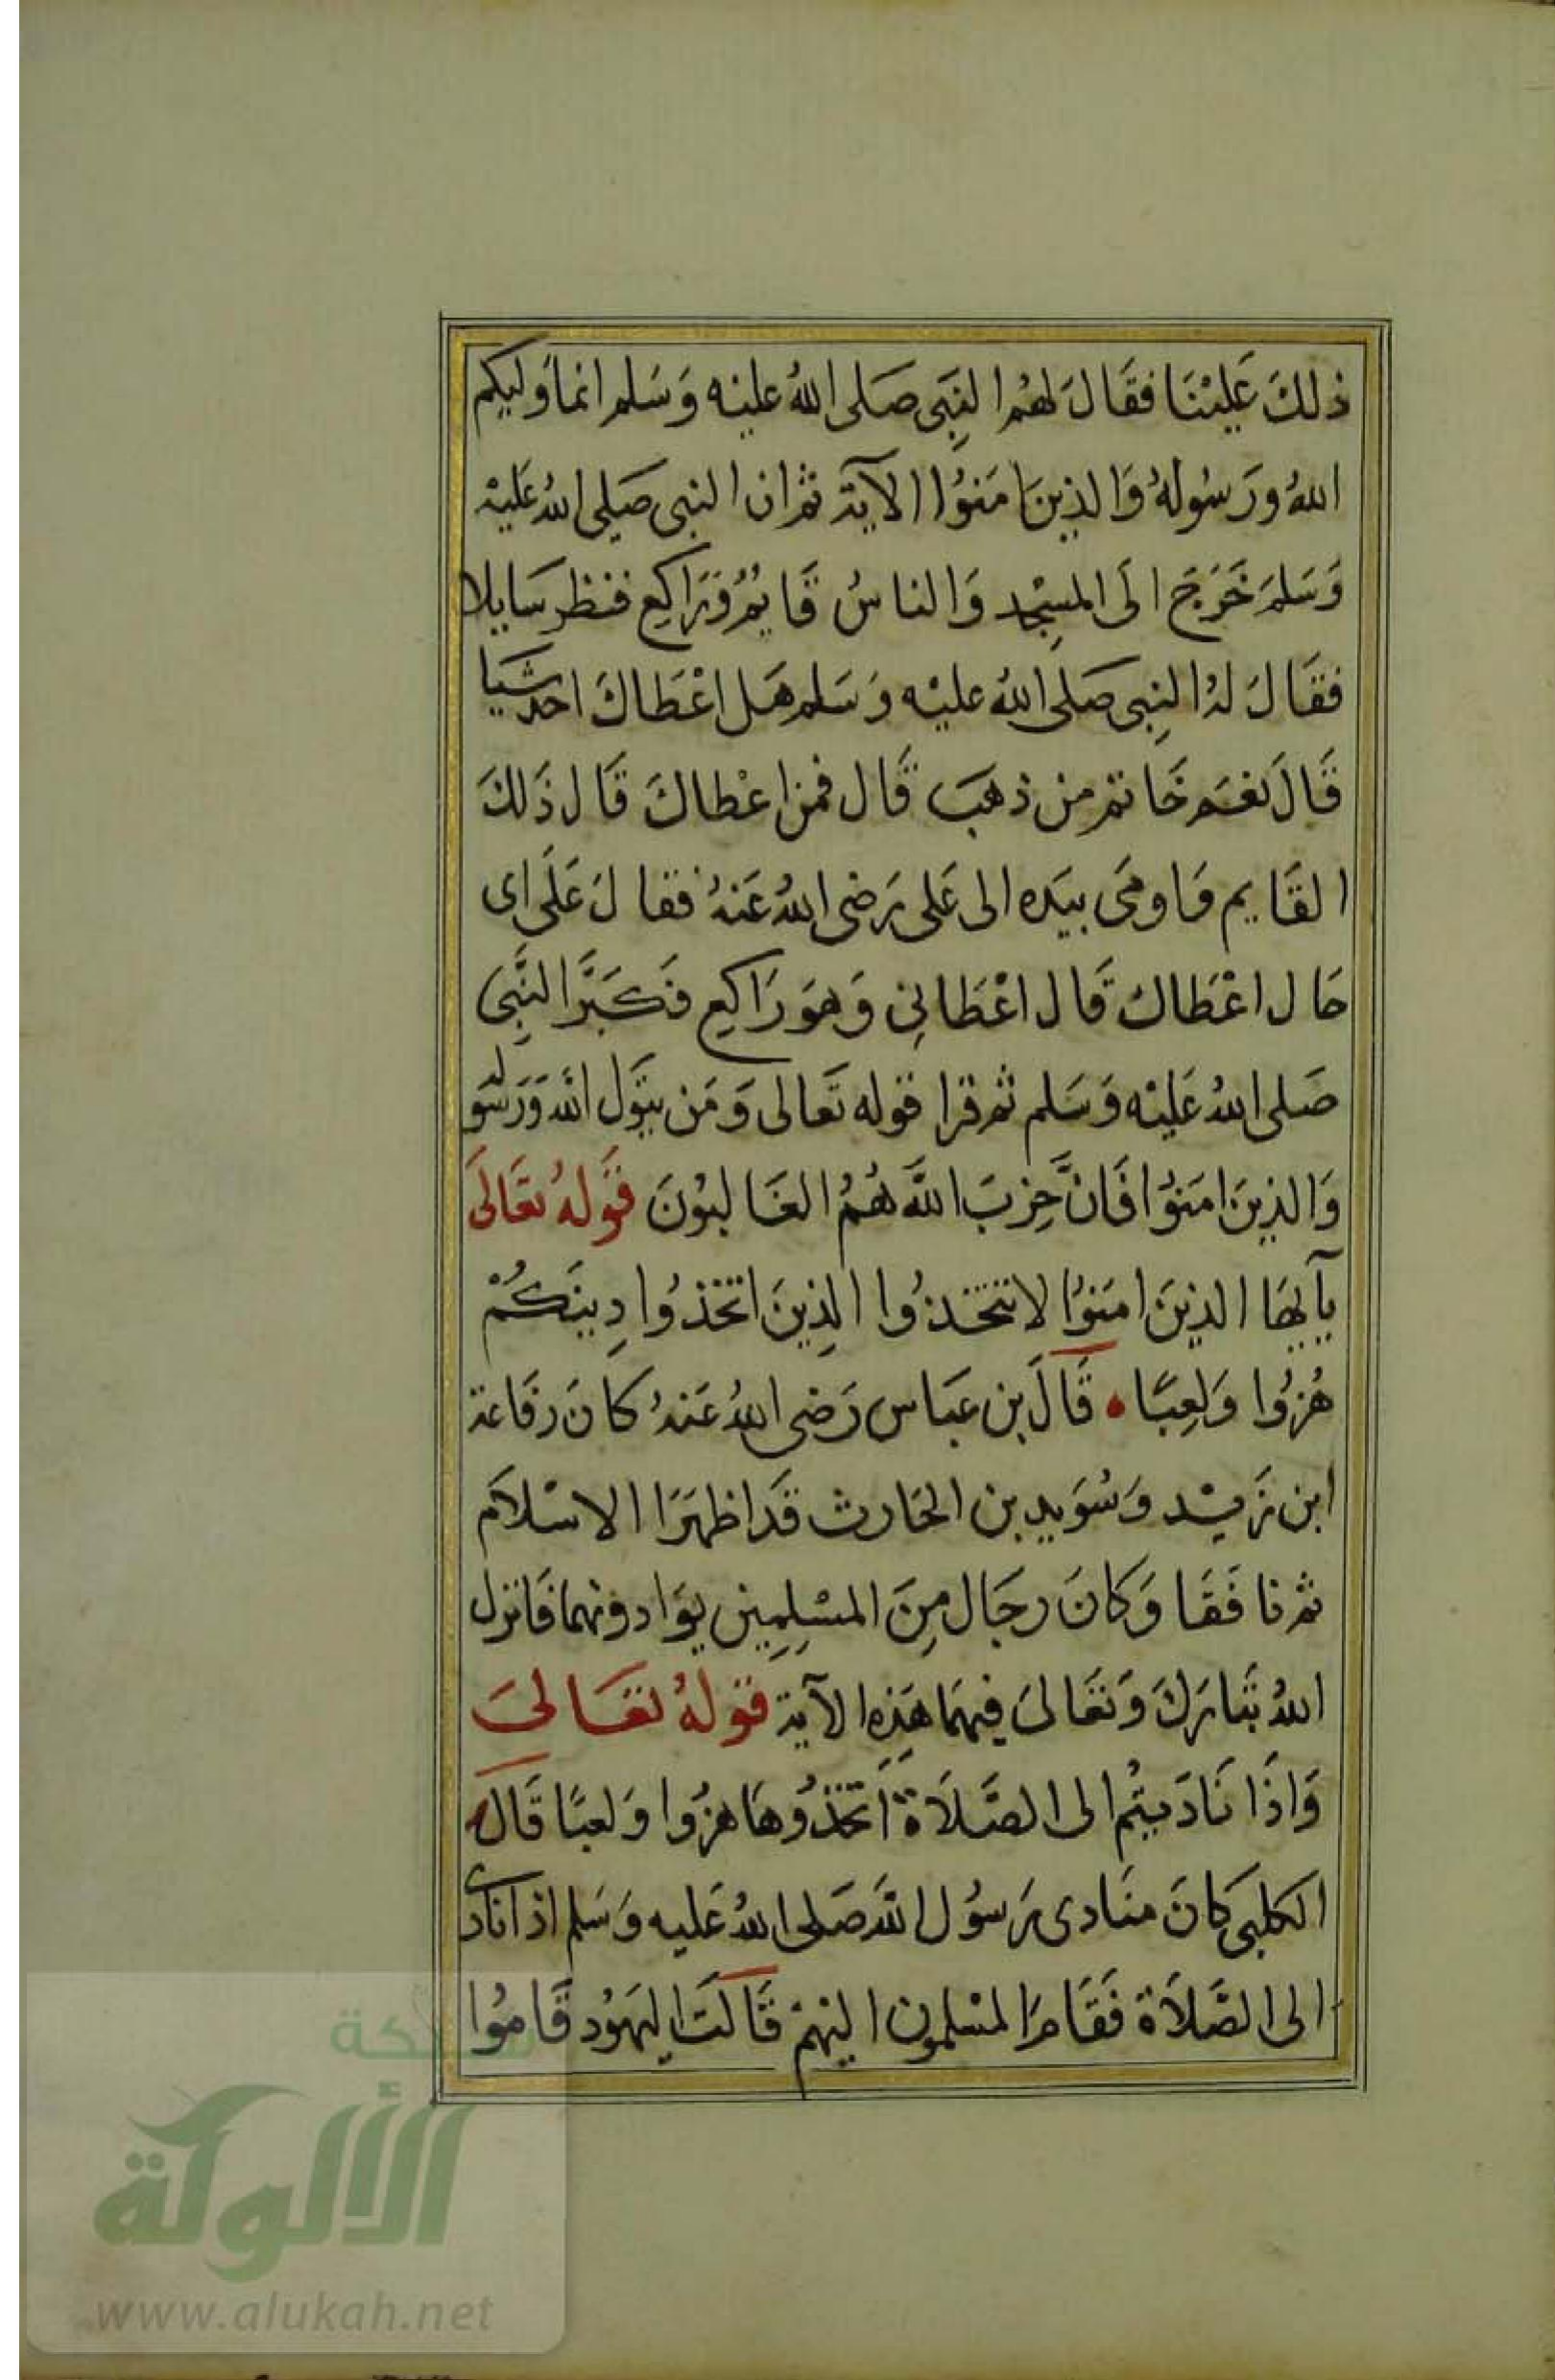 ذلكَ عَليْنَا فقَالَ لهُم النِبَى صَلى اللهُ عليْه وَسَلم انمَا وَليكم
اللهُ ورَسُولهُ وَالذينَ امَنوُا الآية ثم ان النبى صَلى اللهُ عَليْه
وَسَلمَ خَرَجَ الَى المسِجْد وَالناسُ قَايُم وَرَاكِع فنظر سَايلا
فقَالَ لهُ النِبى صَلى اللهُ عليْه وَسَلم هَل اعْطَاكَ احد شَيا
قَالَ نعَم خَاتم من ذهَب قَال فمن اعْطاكَ قَال ذَلكَ
القَايم وَاومَى بيَده الى عَلى رَضى اللهُ عَنهُ فقالَ عَلَى اى
حَال اعْطَاكَ قَال اعْطَانِى وَهوَ رَاكِع فكَبَّرَ النَّبِى
صَلى اللهُ عَليْه وَسَلم ثم قرا قوله تَعالى وَمَن يتَوَل اللهَ وَرَسُوله
وَالذينَ امَنوُا فَانَّ حِزبَ اللَّه هُمُ الغَالبوُنَ قَولهُ تعَالَى
يآ ايهَا الذينَ امَنوُا لا تتخذُوا الذِينَ اتخذوُا دِينَكُمْ
هُزوُا وَلعِبًا • قَالَ بن عبَاس رَضى اللهُ عَنهُ كانَ رفَاعة
ابن زَيْد وَسُوَيد بن الحَارث قَد اظهَرَا الاسْلاَم
ثم نافَقَا وَكانَ رجَال مِنَ المسْلِمِين يوَادونهما فَانزل
اللهُ تبَارَكَ وَتعَالىَ فيهمَا هَذِه الآية قولهُ تعَالىَ
وَاذَا نَادَيتُم الى الصَّلاَة اتخذُوهَا هزُوا وَلعبًا قَالَ
الكلبى كانَ منَادى رَسُول اللهَ صَلى اللهُ عَليه وَسَلم اذا نادى
الى الصَّلاَة فقَامَ المسْلمون اليْهمْ قَالَت اليَهوُد قَامُوا
شبكة
الألوكة
www.alukah.net